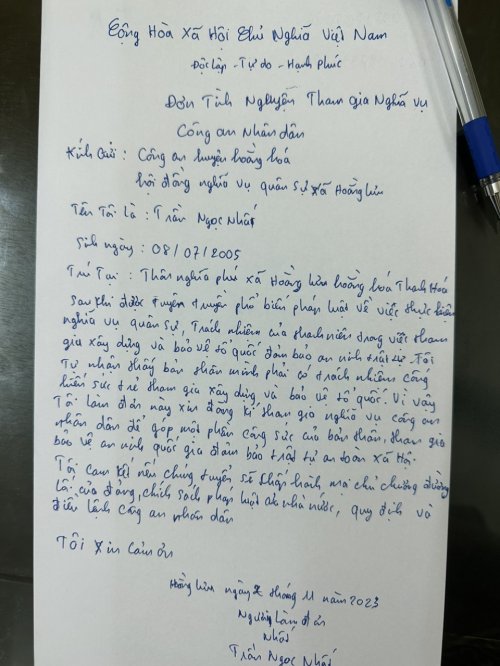 Cộng Hòa Xã Hội Chủ Nghĩa Việt Nam
Độc lập - Tự do - Hạnh phúc
Đơn Tình Nguyện Tham gia Nghĩa vụ
Công an Nhân dân
Kính Gửi : Công an huyện hoằng hoá
hội đồng nghĩa vụ quân sự xã Hoằng lưu
Tên Tôi Là : Trần Ngọc Nhất
Sinh ngày : 08/07/2005
Trú Tại : Thôn nghĩa phú xã Hoằng lưu hoằng hóa Thanh Hoá
Sau khi được tuyên truyền phổ biến pháp luật về việc thực hiện
nghĩa vụ quân sự, Trách nhiệm của thanh niên trong việc tham
gia xây dựng và bảo vệ tổ quốc đảm bảo an ninh trật tự. Tôi
Tự nhận thấy bản thân mình phải có trách nhiệm cống
hiến sức trẻ tham gia xây dựng và bảo vệ tổ quốc. Vì vậy
Tôi làm đơn này xin đăng kí tham gia nghĩa vụ công an
nhân dân để góp một phần công sức của bản thân, tham gia
bảo vệ an ninh quốc gia đảm bảo trật tự an toàn xã Hội.
Tôi cam kết nếu chúng tuyển sẽ chấp hành mọi chủ chương đường
lối của đảng, chính sách pháp luật của nhà nước, quy định và
điều lệnh công an nhân dân
Tôi xin cảm ơn
Hoằng lưu ngày tháng 11 năm 2023
Người làm đơn
Nhất
Trần Ngọc Nhất